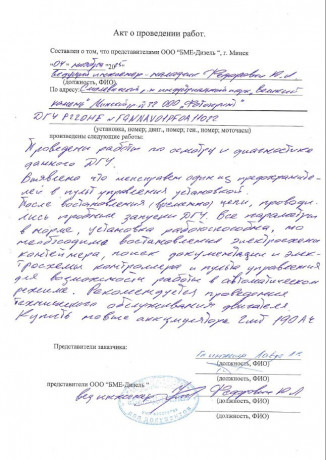 Акт о проведении работ.
Составлен о том, что представителями ООО "БМЕ-Дизель ", г. Минск
"04"
Ведущий инженер-наладчик Федорович Ю.Л
(должность, ФИО)
По адресу:
камень"
ДГУ P220HE
(установка, номер, двиг., номер, ген., номер, моточасы)
произведение следующие работы:
Проведены работы по осмотру и диагностике
данного ДГУ.
Выявлено что неисправен один из предохраните-
лей в пульт управления установкой.
После востановления (временно) цепи, проводи-
лись пробные запуски ДГУ. Все параметры
в норме, установка работоспособна, но
необходимо востановление электросхемы
контейнера, поиск документации и элек-
тросхемы контроллера и пульта управления
для возможности работы в автоматическом
режиме. Рекомендуется проведение
технического обслуживания двигателя
Купить новые аккумулятора 2шт 190Ач
Представители заказчика:
(должность, ФИО)
(должность, ФИО)
представители ООО "БМЕ-Дизель "
вед инженер Федорович Ю.Л
(должность, ФИО)